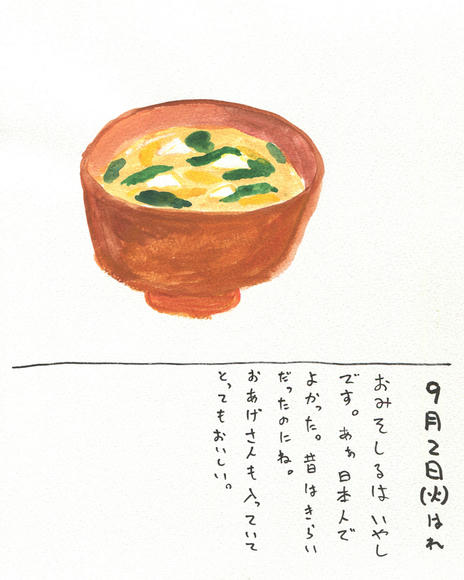 9月2日(火)はれ
おみそしるは いやし
です。あぁ 日本人で
よかった。昔はきらい
だったのにね。
おあげさんも入っていて
とってもおいしい。